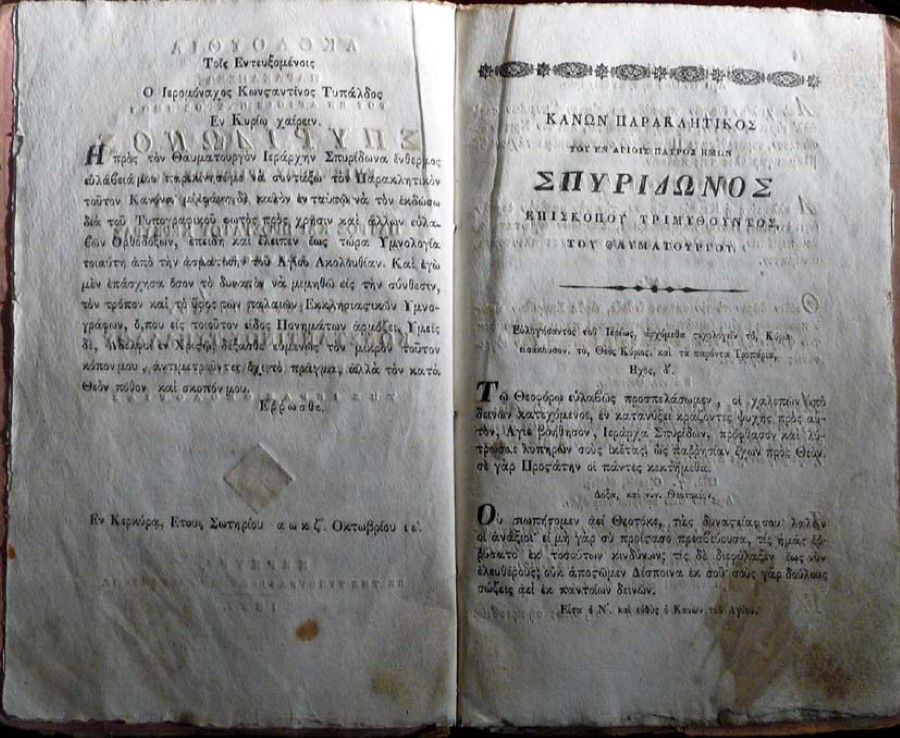 Τοῖς Εντευξομένοις
Ο Ιερομόναχος Κωνςαντῖνος Τυπάλδος
Εν Κυρίῳ χαίρειν.
Η πρὸς τὸν Θαυματουργὸν Ιεράρχην Σπυρίδωνα ἔνθερμος
εὐλάβειά μου παρεκίνησέ με νὰ συντάξω τὸν Παρακλητικὸν
τοῦτον Κανόνα· μὲ ἐφάνη δὲ καλὸν ἐν ταυτῷ νὰ τὸν ἐκδώσω
διὰ τοῦ Τυπογραφικοῦ φωτὸς πρὸς χρῆσιν καὶ ἄλλων εὐλα-
βῶν Ορθοδόξων, ἐπειδὴ καὶ ἔλειπεν ἕως τώρα Υμνολογία
τοιαύτη ἀπὸ τὴν ἀσματικὴν τοῦ Αγίου Ακολουθίαν. Καὶ ἐγὼ
μὲν ἐπάσχησα ὅσον τὸ δυνατὸν νὰ μιμηθῶ εἰς τὴν σύνθεσιν,
τὸν τρόπον καὶ τὸ ὕφος τῶν παλαιῶν Εκκλησιαςικῶν Υμνο-
γράφων, ὅ,που εἰς τοιοῦτον εἶδος Πονημάτων ἁρμόζει. Υμεῖς
δὲ, Αδελφοὶ ἐν Χριςῷ, δέξασθε εὐμενῶς τὸν μικρὸν τοῦτον
κόπον μου, ἀντιμετροῦντες ὄχι τὸ πρᾶγμα, ἀλλὰ τὸν κατὰ
Θεὸν πόθον καὶ σκοπόν μου.
Ερρωσθε.
Εν Κερκύρᾳ, Ετους Σωτηρίου αωκζ΄. Οκτωβρίου ιε΄.
ΚΑΝΩΝ ΠΑΡΑΚΛΗΤΙΚΟΣ
ΤΟΥ ΕΝ ΑΓΙΟΙΣ ΠΑΤΡΟΣ ΗΜΩΝ
ΣΠΥΡΙΔΩΝΟΣ
ΕΠΙΣΚΟΠΟΥ ΤΡΙΜΥΘΟΥΝΤΟΣ,
ΤΟΥ ΘΑΥΜΑΤΟΥΡΓΟΥ.
Εὐλογήσαντος τοῦ Ιερέως, ἀρχόμεθα ςιχολογεῖν τὸ, Κύριε
εἰσάκουσον. τὸ, Θεὸς Κύριος. καὶ τὰ παρόντα Τροπάρια,
Ηχος, δ΄.
Τῷ Θεοφόρῳ εὐλαβῶς προσπελάσωμεν, οἱ χαλεπῶν ὑπὸ
δεινῶν κατεχόμενοι, ἐν κατανύξει κράζοντες ψυχῆς πρὸς αὐ-
τὸν, Αγιε βοήθησον, Ιεράρχα Σπυρίδων, πρόφθασον καὶ λύ-
τρωσαι λυπηρῶν σοὺς ἱκέτας, ὡς παῤῥησίαν ἔχων πρὸς Θεὸν.
σὲ γὰρ Προςάτην οἱ πάντες κεκτήμεθα.
Δόξα, καὶ νῦν. Θεοτοκίον.
Οὐ σιωπήσομεν ἀεὶ Θεοτόκε, τὰς δυναςείας σου λαλεῖν
οἱ ἀνάξιοι· εἰ μὴ γὰρ σὺ προΐςασο πρεσβεύουσα, τίς ἡμᾶς ἐῤ-
ῥύσατο ἐκ τοσούτων κινδύνων; τίς δὲ διεφύλαξεν ἕως νῦν
ἐλευθέρους; οὐκ ἀποςῶμεν Δέσποινα ἐκ σοῦ· σοὺς γὰρ δούλους
σώζεις ἀεὶ ἐκ παντοίων δεινῶν.
Εἶτα ὁ Ν΄. καὶ εὐθὺς ὁ Κανὼν τοῦ Αγίου.